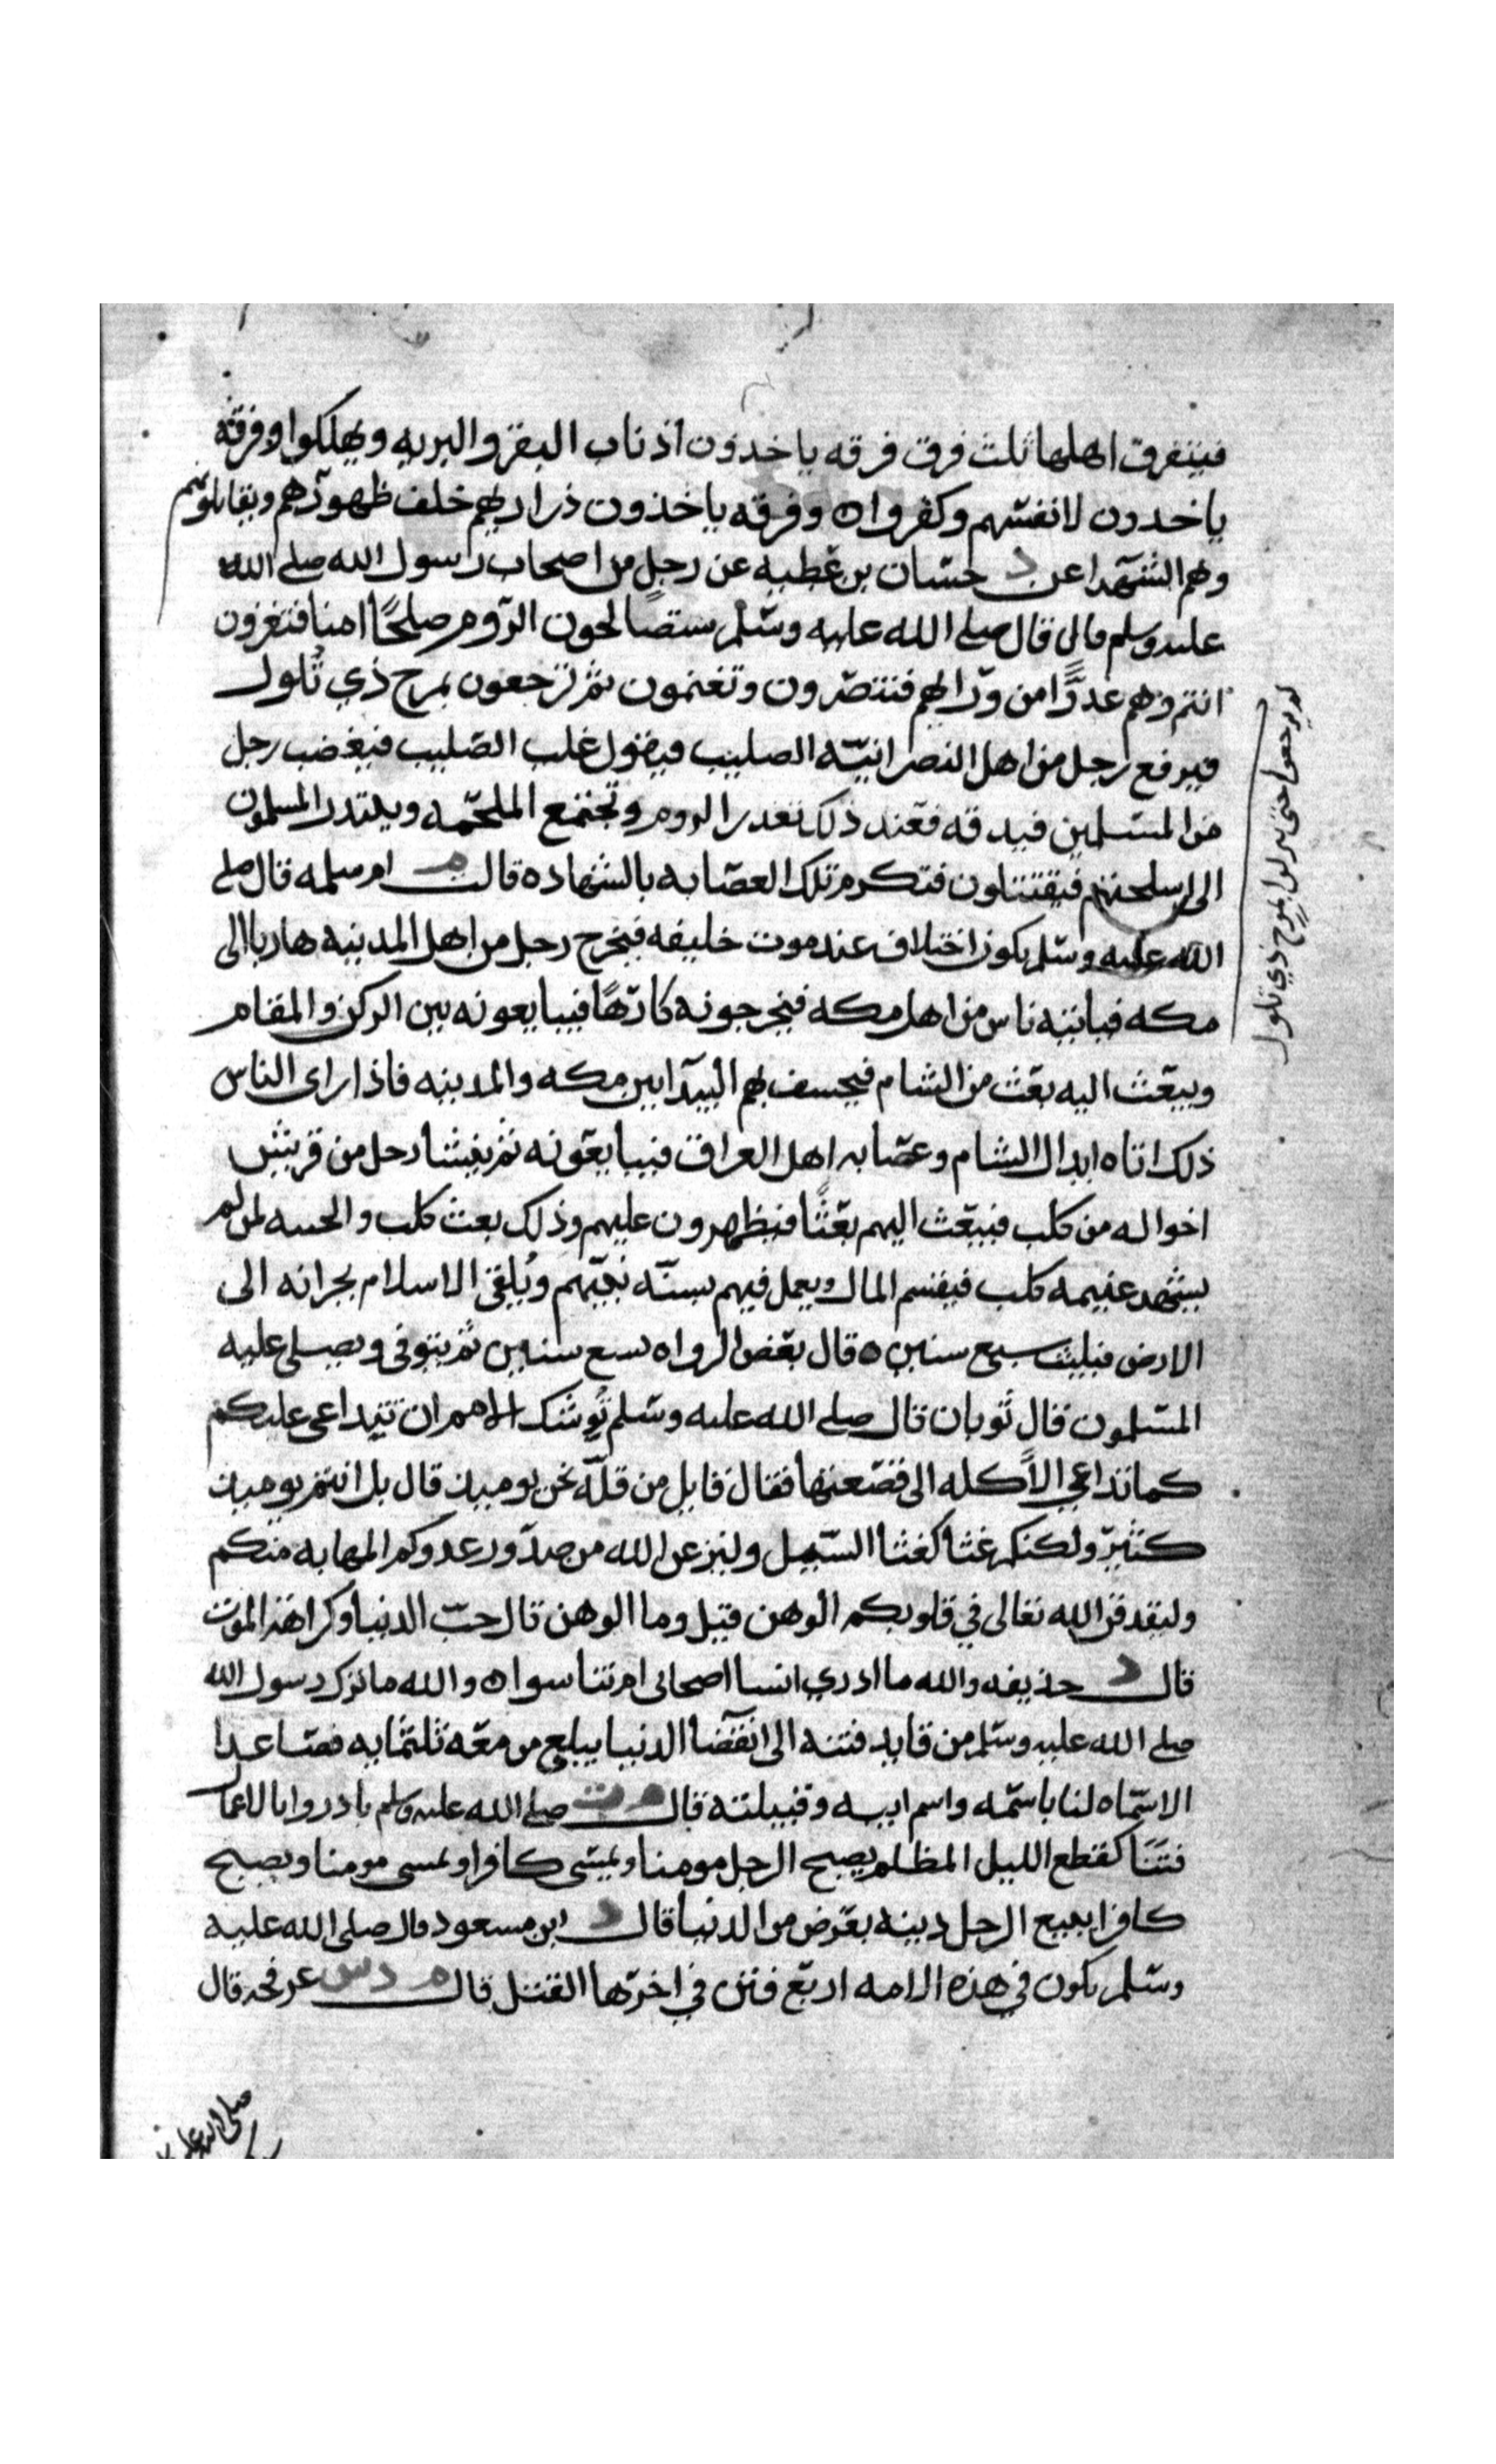 فيتفرق اهلها ثلث فرق فرقه ياخدون اذناب البقر والبريه ويهلكوا وفرقه
ياخدون لانفسهم وكفروا ه وفرقه ياخذون ذراريهم خلف ظهورهم ويقاتلونهم
وهم الشهدا عن د حسّان بن عطيه عن رجل من اصحاب رسول الله صلى الله
عليه وسلم قال قال صلى الله عليه وسلم ستصالحون الروم صلحًا امنا فتغزون
انتم وهم عدوًّا من ورايهم فتنتصرون وتغنمون ثم ترجعون بمرج ذي تُلول
فيرفع رجل من اهل النصرانيّه الصليب فيقول غلب الصليب فيغضب رجل
من المسلمين فيدقه فعند ذلك تغدر الروم وتجتمع الملحمه ويبتدر المسلمون
الى اسلحتهم فيقتتلون فتكرم تلك العصابه بالشهاده قالت م ام سلمه قال صلى
الله عليه وسلم يكون اختلاف عند موت خليفه فيخرج رجل من اهل المدينه هاربا الى
مكه فياتيه ناس من اهل مكه فيخرجونه كارهًا فيبايعونه بين الركن والمقام
ويبعث اليه بعث من الشام فيخسف بهم البيدا بين مكه والمدينه فاذا راى الناس
ذلك اتاه ابدال الشام وعصايه اهل العراق فيبايعونه ثم ينشا رجل من قريش
اخواله من كلب فيبعث اليهم بعثًا فيظهرون عليهم وذلك بعث كلب والخيبه لمن لم
يشهد غنيمه كلب فيقسم المال ويعمل فيهم بسنّه نبيّهم ويُلقى الاسلام بجرانه الى
الارض فيلبث سبع سنين ه قال بعض الرواه تسع سنين ثم يتوفى ويصلى عليه
المسلمون قال ثوبان قال صلى الله عليه وسلم تُوشك الامم ان تتداعى عليكم
كما تداعى الاكله الى قصعتها فقال قايل من قلّه نحن يوميذ قال بل انتم يوميذ
كثير ولكنكم غثا كغثا السيل ولينزعن الله من صدور عدوكم المهابه منكم
وليقدفن الله تعالى في قلوبكم الوهن قيل وما الوهن قال حبّ الدنيا وكراهة الموت
قال د حذيفه والله ما ادري انسا اصحابى ام تناسوا ه والله ما ترك رسول الله
صلى الله عليه وسلم من قايد فتنه الى انقضا الدنيا يبلغ من معه ثلثمايه فصاعدا
الا سماه لنا باسمه واسم ابيه وقبيلته قال م ت صلى الله عليه وسلم بادروا بالاعمال
فتنًا كقطع الليل المظلم يصبح الرجل مومنا ويمسى كافرا ويمسى مومنا ويصبح
كافرا يبيع الرجل دينه بعرض من الدنيا قال د ابن مسعود قال صلى الله عليه
وسلم يكون في هذه الامه اربع فتن في اخرها القتل قال م د س عرفجه قال
ثم يرجعوا حتى ينزلوا بمرج ذي تلول
صلى الله عليه